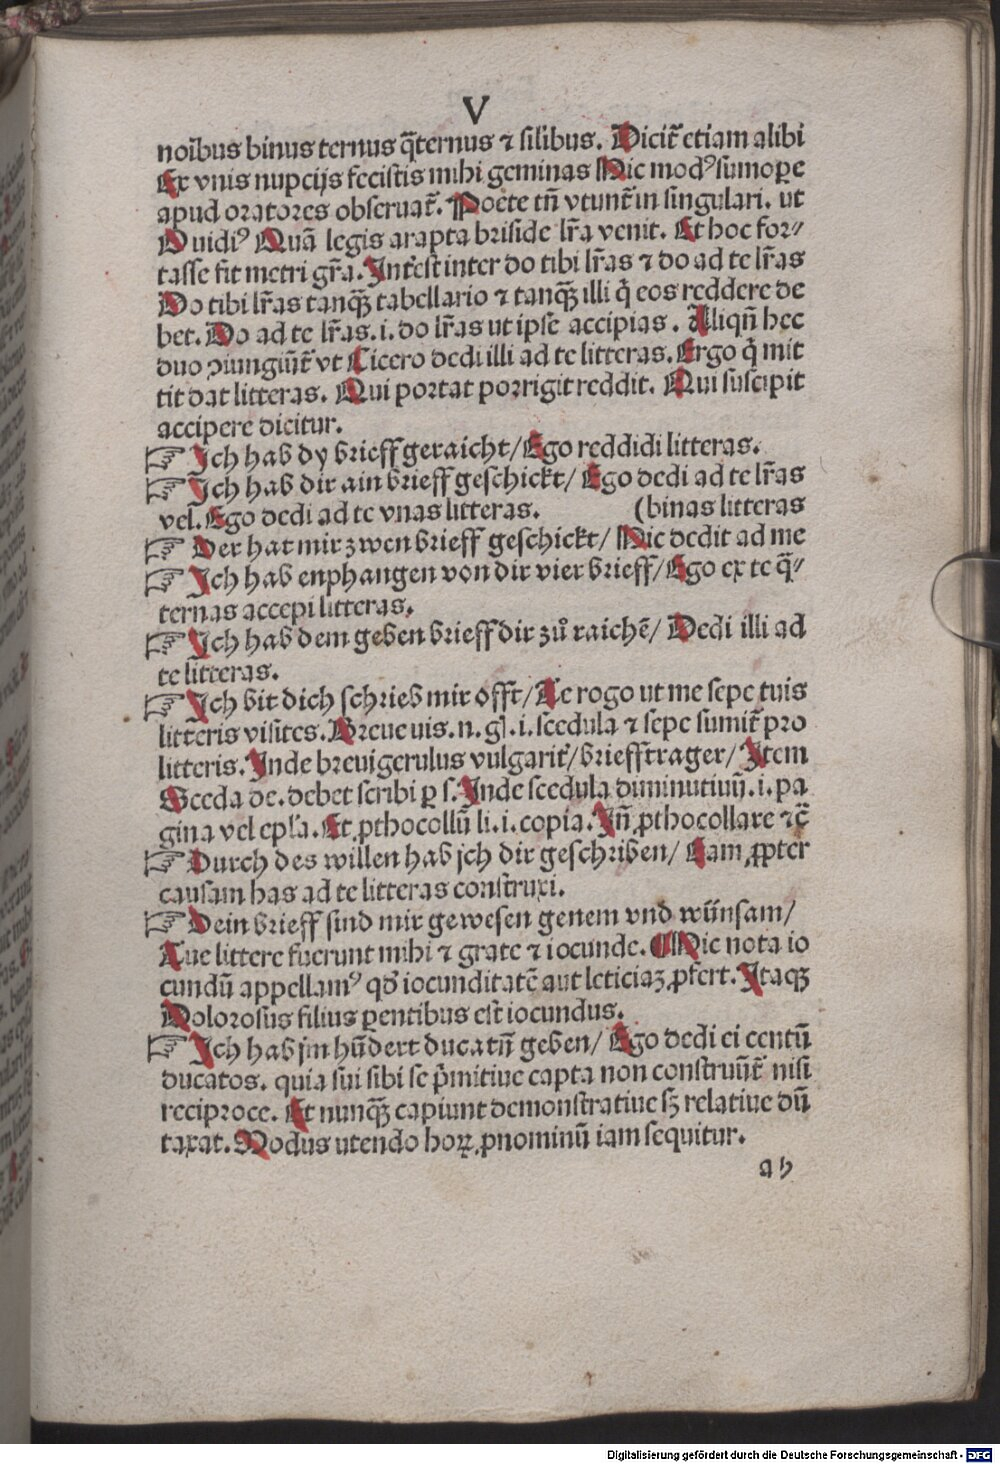 V
noĩbus binus ternus q̃ternus ⁊ silibus. Dicit̃ etiam alibi
Ex vnis nupcijs fecistis mihi geminas Hic modꝰ sumoꝑe
apud oratores obseruat̃. Poete tñ vtunt̃ in singulari. ut
Ouidiꝰ Quã legis arapta briside lr̃a venit. Et hoc for⸗
tasse fit metri gr̃a. Int̃est inter do tibi lr̃as ⁊ do ad te lr̃as
Do tibi lr̃as tanqꝫ tabellario ⁊ tanqꝫ illi q̇ eos reddere de
bet. Do ad te lr̃as .i. do lr̃as ut ipse accipias. Aliqñ hec
duo ꝯiungũt̃ vt Cicero dedi illi ad te litteras. Ergo q̇ mit
tit dat litteras. Qui portat porrigit reddit. Qui suscipit
accipere dicitur.
☞ Ich hab dy brieff geraicht/ Ego reddidi litteras.
☞ Ich hab dir ain brieff geschickt/ Ego dedi ad te lr̃as
vel. Ego dedi ad te vnas litteras. (binas litteras
☞ Der hat mir zwen brieff geschickt/ Hic dedit ad me
☞ Ich hab enphangen von dir vier brieff/ Ego ex te q̃⸗
ternas accepi litteras.
☞ Ich hab dem geben brieff dir zů raichẽ/ Dedi illi ad
te litteras.
☞ Ich bit dich schrieb mir offt/ Te rogo ut me sepe tuis
litteris visites. Breue uis. n. gl̃. i. scedula ⁊ sepe sumit̃ pro
litteris. Inde breuigerulus vulgarit̃/ briefftrager/ Item
Sceda de. debet scribi ꝑ s. Inde scedula diminutiuũ .i. pa
gina vel epl̃a. Et ꝓthocollũ li. i. copia. Iñ ꝓthocollare ⁊c̃
☞ Durch des willen hab jch dir geschriben/ Eam ꝓpter
causam has ad te litteras construxi.
☞ Dein brieff sind mir gewesen genem vnd wünsam/
Tue littere fuerunt mihi ⁊ grate ⁊ iocunde. ¶ Hic nota io
cundũ appellamꝰ qď iocunditatẽ aut leticiaꝫ ꝓfert. Itaqꝫ
Dolorosus filius ꝑentibus est iocundus.
☞ Ich hab jm hũdert ducatñ geben/ Ego dedi ei centũ
ducatos. quia sui sibi se p̃mitiue capta non construũt̃ nisi
reciproce. Et nunqꝫ capiunt demonstratiue sꝫ relatiue dũ
taxat. Modus utendo hoꝝ ꝓnominũ iam sequitur.
a h
Digitalisierung gefördert durch die Deutsche Forschungsgemeinschaft - DFG